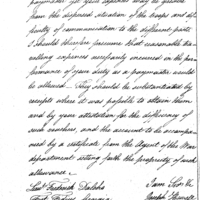 paymaster yet your expenses may be greater
from the dispersed situation of the troops and dif-
ficulty of communication to the different parts
I should therefore presume that reasonable tra-
velling expenses necessarily incurred in the per-
formance of your duty as a paymaster would
be allowed. They should be substantiated by
receipts where it was possible to attain them
and by your attestation for the deficiency of
such vouchers, and the account to be accompa-
nied by a certificate from the Agent of the War
department setting forth the propriety of such
allowance.
I am Sir &c
Lieut Frederick Dalcho
Joseph Howell